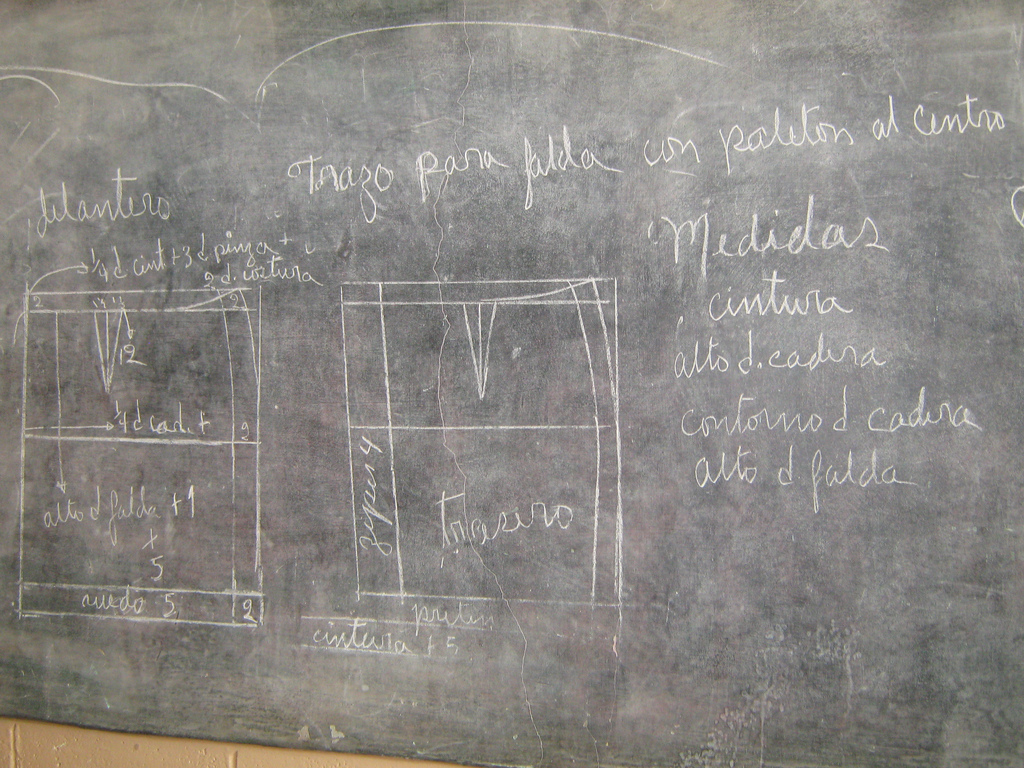 Trazo para falda con paleton al centro
delantero
1/4 d cint + 3 d pinza +
2 d. costura
2
2
12
1/4 d cad. +
2
alto d falda + 1
+
5
ruedo 5
2
trasero
pretin
cintura + 5
Medidas
cintura
alto d. cadera
contorno d cadera
alto d falda